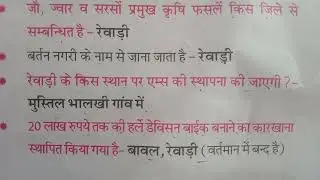 जौ, ज्वार व सरसों प्रमुख कृषि फसलें किस जिले से
सम्बन्धित है - रेवाड़ी
बर्तन नगरी के नाम से जाना जाता है - रेवाड़ी
रेवाड़ी के किस स्थान पर एम्स की स्थापना की जाएगी ?-
मुस्तिल भालखी गांव में
20 लाख रुपये तक की हर्ले डेविसन बाईक बनाने का कारखाना
स्थापित किया गया है- बावल, रेवाड़ी ( वर्तमान में बन्द है )